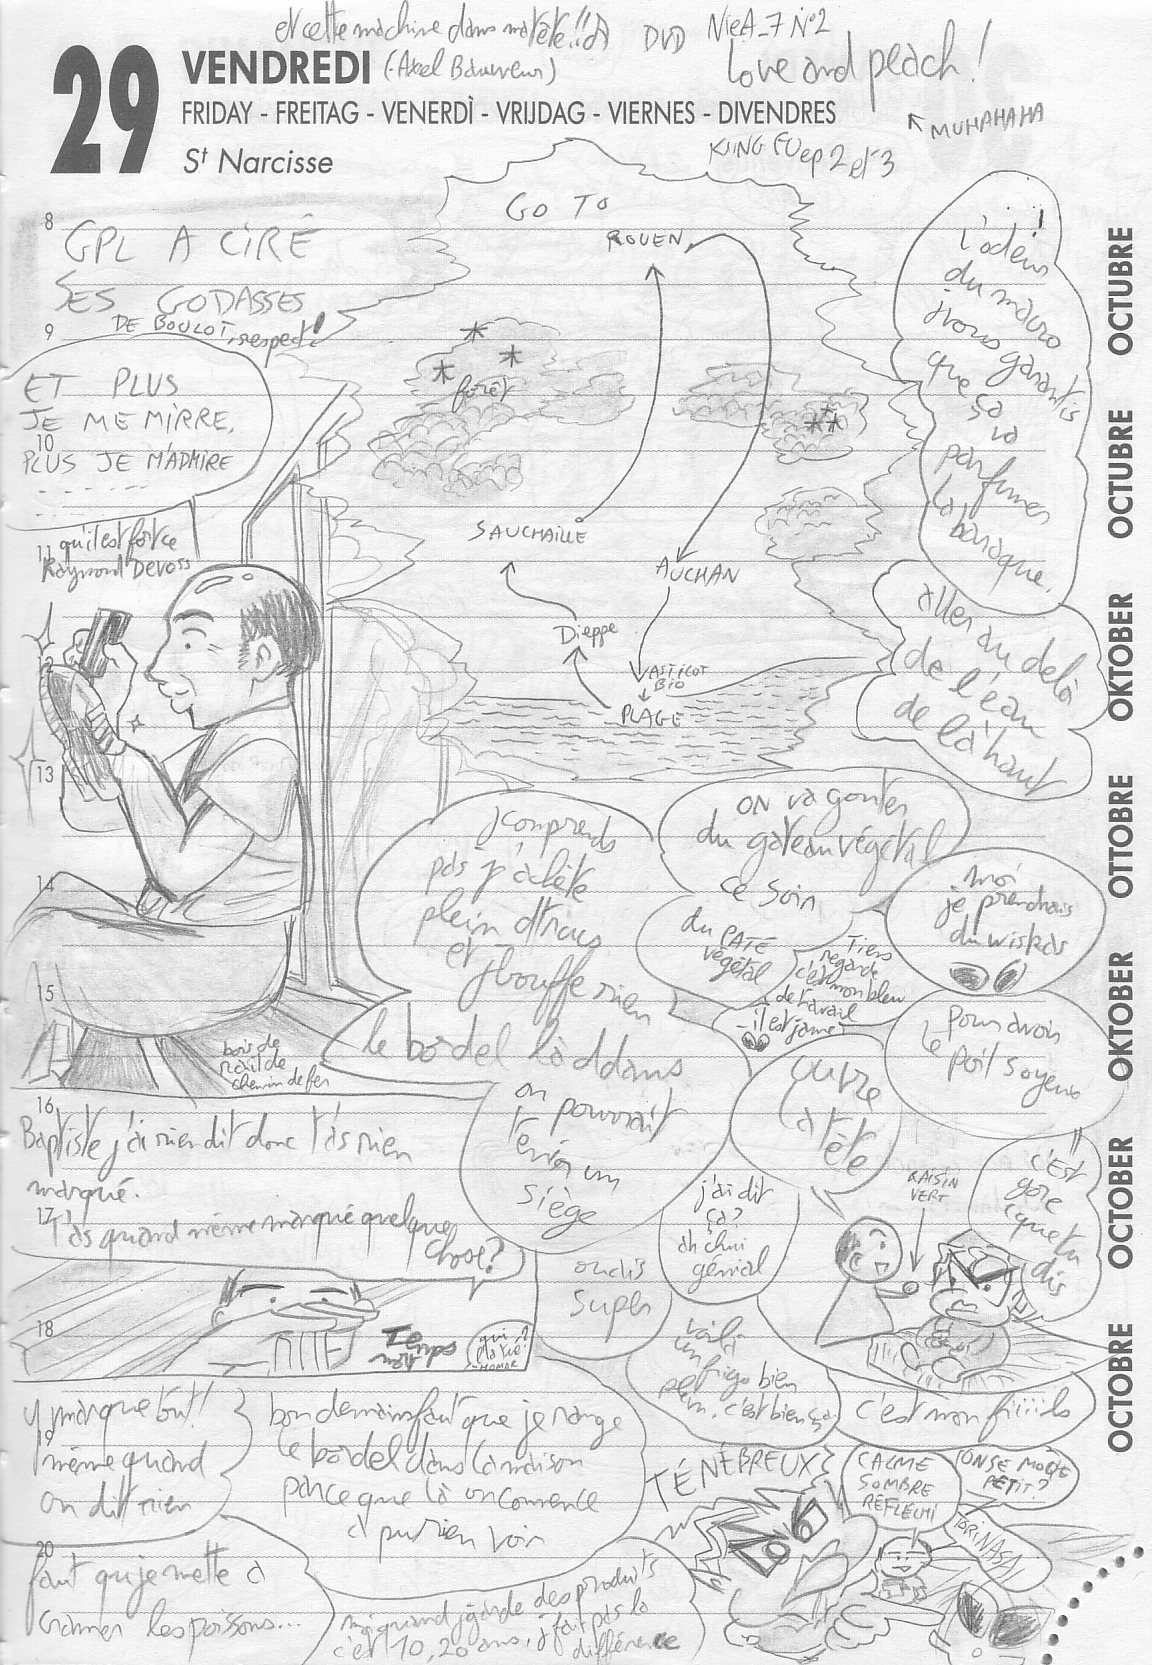 et cette machine dans ma tête !!
DVD NieA_7 N°2
29
VENDREDI
FRIDAY - FREITAG - VENERDÌ - VRIJDAG - VIERNES - DIVENDRES
Sᵗ Narcisse
Love and peach !
MUHAHAHA
KUNG FU ep 2 et 3
GO TO
ROUEN
8
GPL A CIRÉ
SES GODASSES
DE BOULOT, respect !
9
ET PLUS
JE ME MIRRE,
10
PLUS JE M'ADMIRE
11
qu'il est fort ce
Raymond Devos
forêt
SAUCHAILLE
AUCHAN
Dieppe
ASTICOT
BIO
PLAGE
l'odeur !
du mauro
j'vous garantis
que ça
va
parfumer
la baraque.
aller au delà
de l'eau
de là haut
OCTUBRE
OCTUBRE
OKTOBER
OTTOBRE
OKTOBER
OCTOBER
OCTOBRE
12
13
14
15
j'comprends
pas j'achète
plein d'trucs
et
j'bouffe rien
le bordel là ddans
on va gouter
du gateau végétal
ce soir
du PATÉ
végétal
moi
je prendrais
du wiskas
Tiens
regarde
c'est mon bleu
de travail
- il est jaune -
pour avoir
le poil soyeux
bois de
rail de
chemin de fer
on pourrait
tenir un
siège
OUVRE
LA TÊTE
RAISIN
VERT
c'EST
gore
c'que tu
dis
16
Baptiste j'ai rien dit donc t'as rien
marqué.
17
T'as quand même marqué quelque
chose ?
j'ai dit
ça ?
ah chui
génial
ouais
super
18
Temps
mort
voilà
un frigo bien
plein, c'est bien ça
c'est mon fiiiils
y marque tout !
19
même quand
on dit rien
bon demain faut que je range
le bordel dans la maison
parce que là on commence
à pu rien voir
TÉNÉBREUX
CALME
SOMBRE
RÉFLÉCHI
ON SE MOQUE
PETIT ?
TORINASA
20
faut qu'je mette à
cramer les poissons...
moi quand j'garde des produits
c'est 10, 20 ans, j'fait pas la
différence